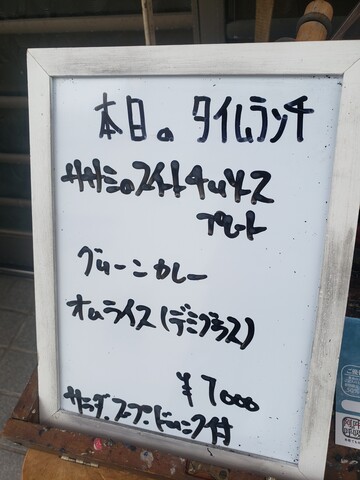 本日の タイムランチ
ササミのスイートチリソース
プレート
グリーンカレー
オムライス(デミグラス)
¥1000
サラダ.スープ.ドリンク付